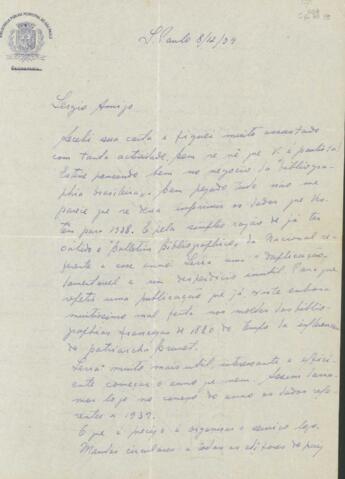 BIBLIOTHECA PUBLICA MUNICIPAL DE SÃO PAULO
S. Paulo 8/12/39
Sergio Amigo
Recebi sua carta e fiquei muito assustado
com tanta actividade. Bem se vê que V. é paulista!
Estive pensando bem no negocio da bibliogra-
phia brasileira. Bem pesado tudo não me
parece que se deva imprimir os dados que
tem para 1938. E pela simples razão de já ter
sahido o "Bulletin Bibliographico" da Nacional re-
ferente a esse anno. Seria uma duplicação
lamentavel e um desperdicio inutil. Para que
repetir uma publicação que já existe embora
muitissimo mal feita nos moldes das biblio-
graphias francezas de 1820 do tempo da influencia
do patriarcha Brunet.
Seria muito mais util, interessante e effici-
ente começar o anno que vem. Assim
mos logo no começo do anno os dados refe-
rentes a 1939.
O que é preciso é organizar o serviço logo.
Mandar circulares a todas as editoras do paiz